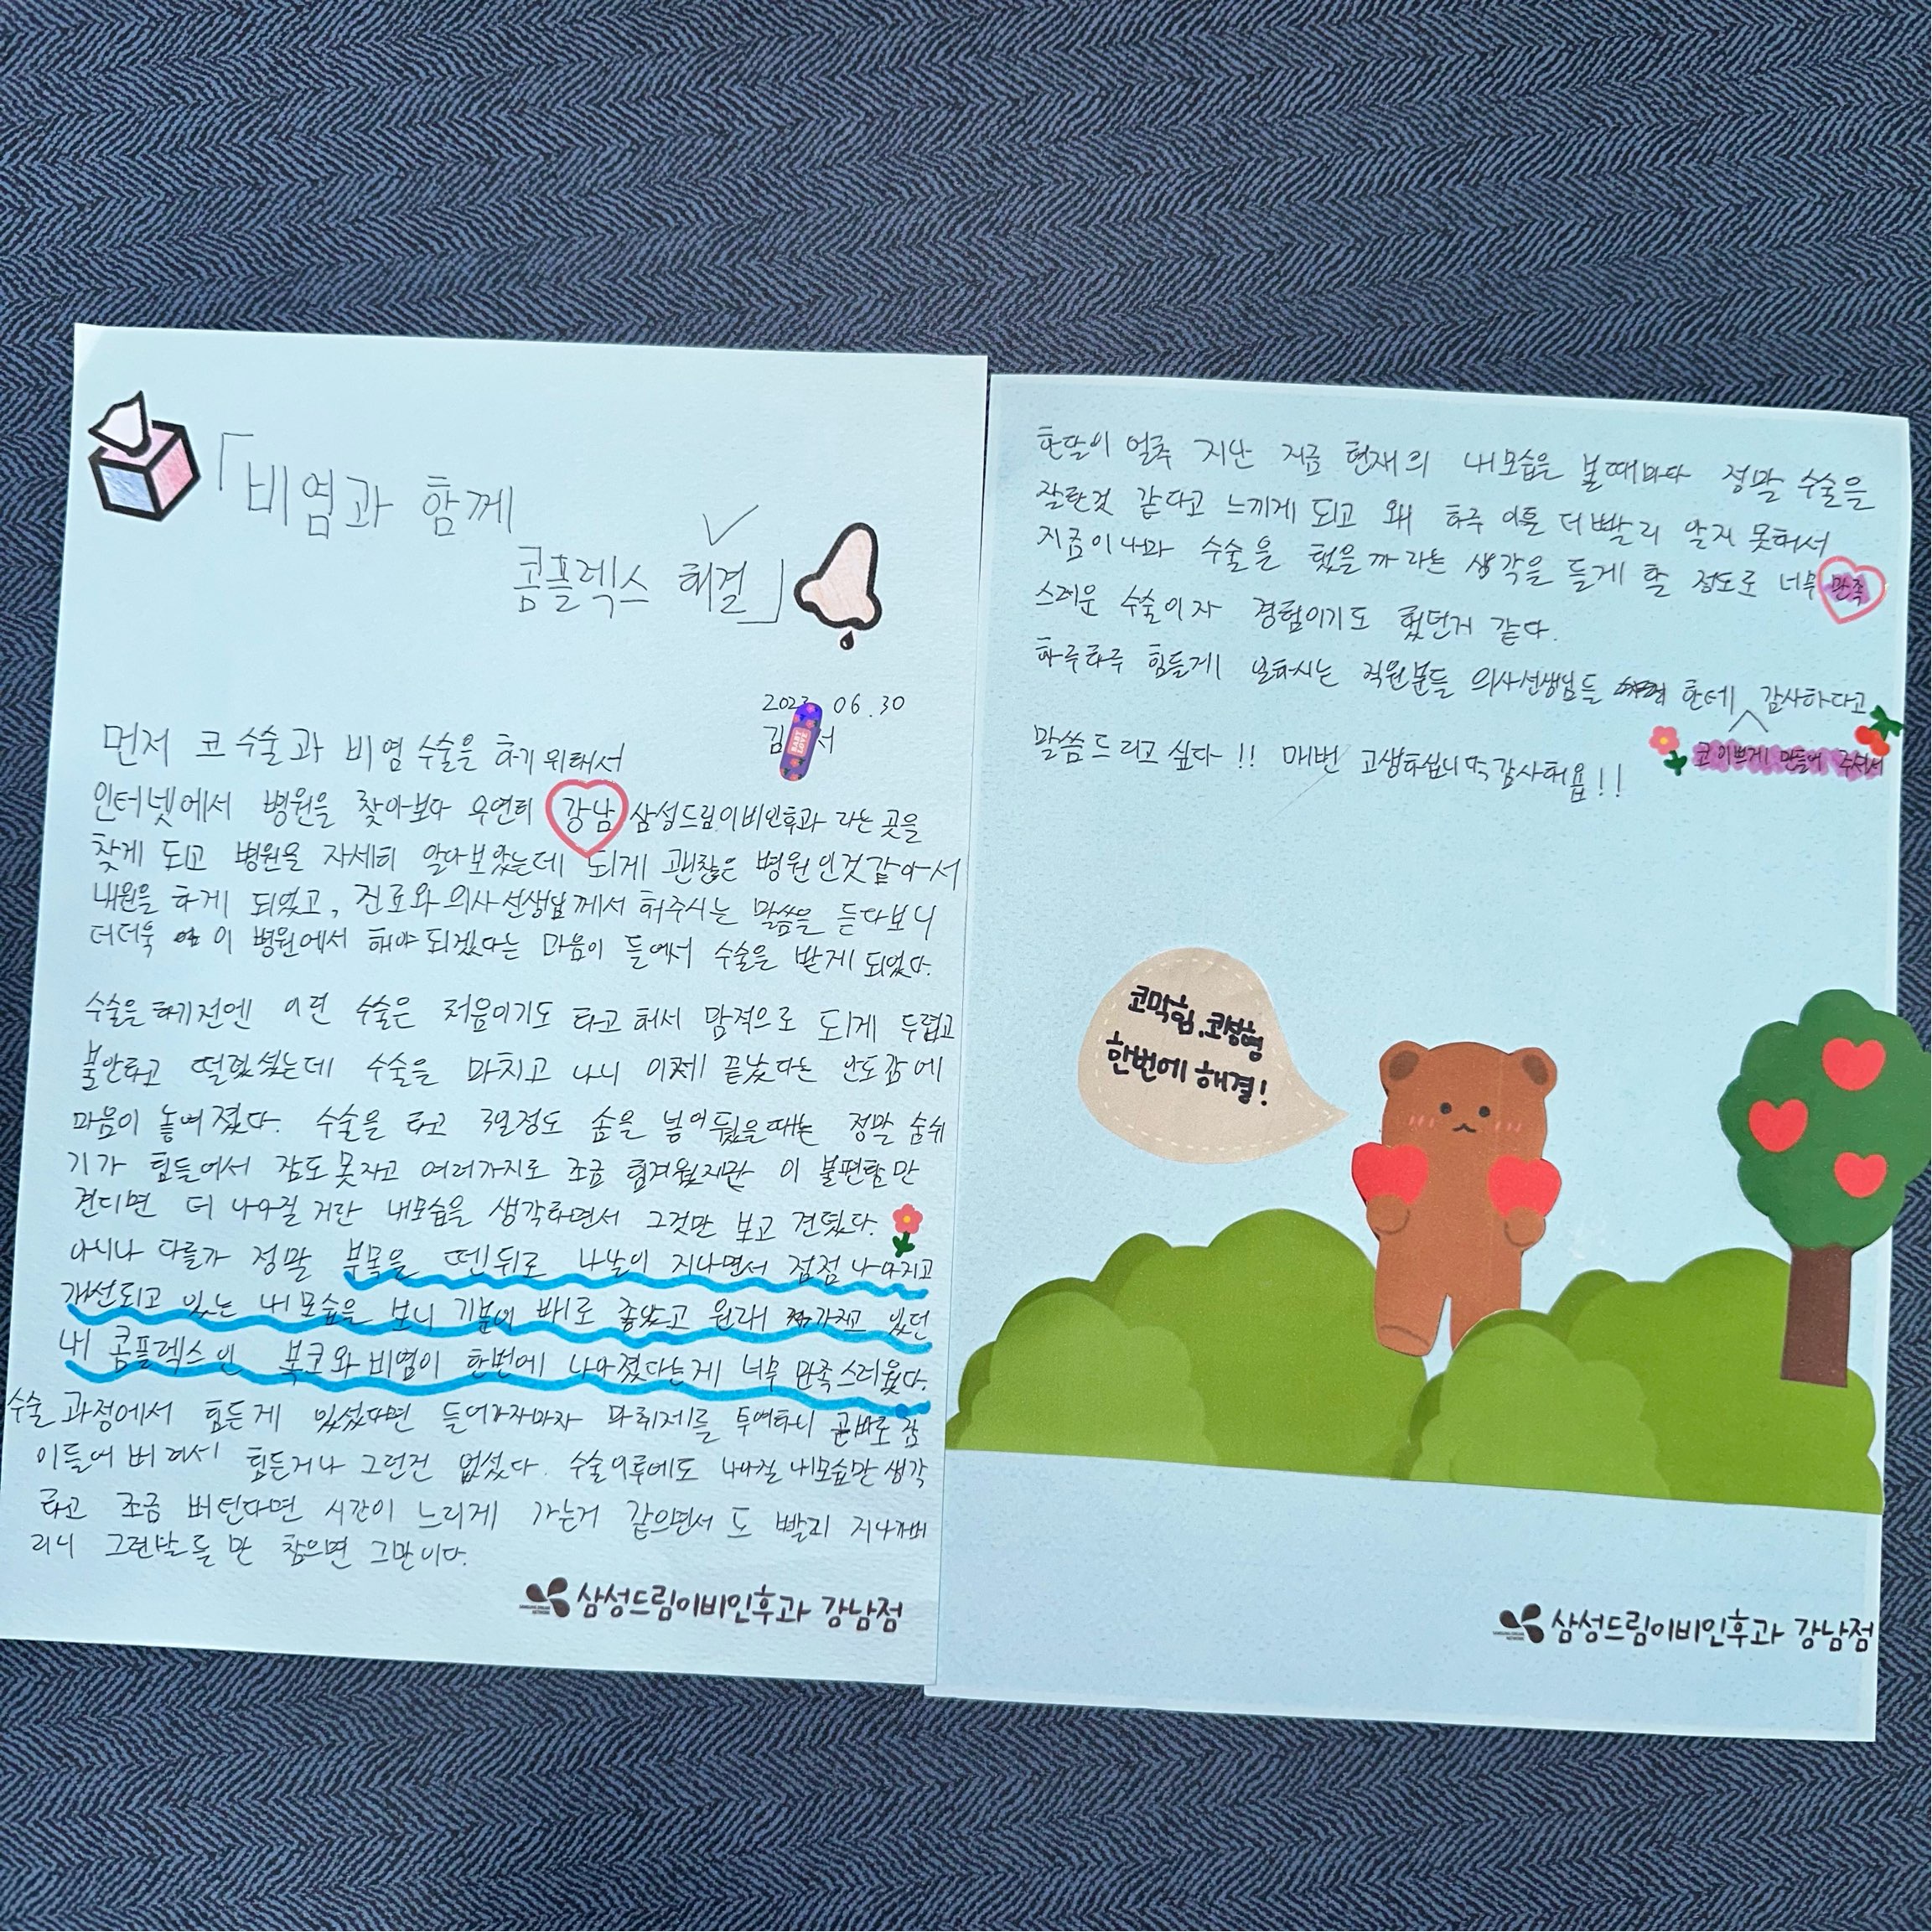 「비염과 함께
콤플렉스 해결」
2023. 06.30
김 서
먼저 코 수술과 비염 수술을 하기 위해서
인터넷에서 병원을 찾아보다 우연히 강남 삼성드림이비인후과 라는 곳을
찾게 되고 병원을 자세히 알아보았는데 되게 괜찮은 병원인것같아서
내원을 하게 되었고, 진료와 의사선생님께서 해주시는 말씀을 듣다보니
더더욱 이 병원에서 해야 되겠다는 마음이 들어서 수술을 받게 되었다.
수술을 하기전엔 이런 수술은 처음이기도 하고 해서 맘적으로 되게 두렵고
불안하고 떨렸었는데 수술을 마치고 나니 이제 끝났다는 안도감에
마음이 놓여졌다. 수술을 하고 3일정도 솜을 넣어뒀을때는 정말 숨쉬
기가 힘들어서 잠도 못자고 여러가지로 조금 힘겨웠지만 이 불편함만
견디면 더 나아질 거란 내모습을 생각하면서 그것만 보고 견뎠다.
아니나 다를까 정말 부목을 뗀뒤로 나날이 지나면서 점점 나아지고
개선되고 있는 내 모습을 보니 기분이 배로 좋았고 원래 가지고 있던
내 콤플렉스인 복코와 비염이 한번에 나아졌다는게 너무 만족스러웠다.
수술 과정에서 힘든게 있었다면 들어가자마자 마취제를 투여하니 곧바로 잠
이들어 버려서 힘든거나 그런건 없었다. 수술이후에도 나아질 내모습만 생각
하고 조금 버틴다면 시간이 느리게 가는거 같으면서도 빨리 지나가버
리니 그런날들만 참으면 그만이다.
삼성드림이비인후과 강남점
한달이 얼추 지난 지금 현재의 내모습을 볼때마다 정말 수술을
잘한것 같다고 느끼게 되고 왜 하루 이틀 더빨리 알지 못해서
지금이나마 수술을 했을까 라는 생각을 들게 할 정도로 너무 만족
스러운 수술이자 경험이기도 했던거 같다.
하루하루 힘들게 일하시는 직원분들 의사선생님들 한테 감사하다고
코 이쁘게 만들어 주셔서
말씀드리고 싶다!! 매번 고생하십니다 감사해욥!!
코막힘, 코성형
한번에 해결!
삼성드림이비인후과 강남점